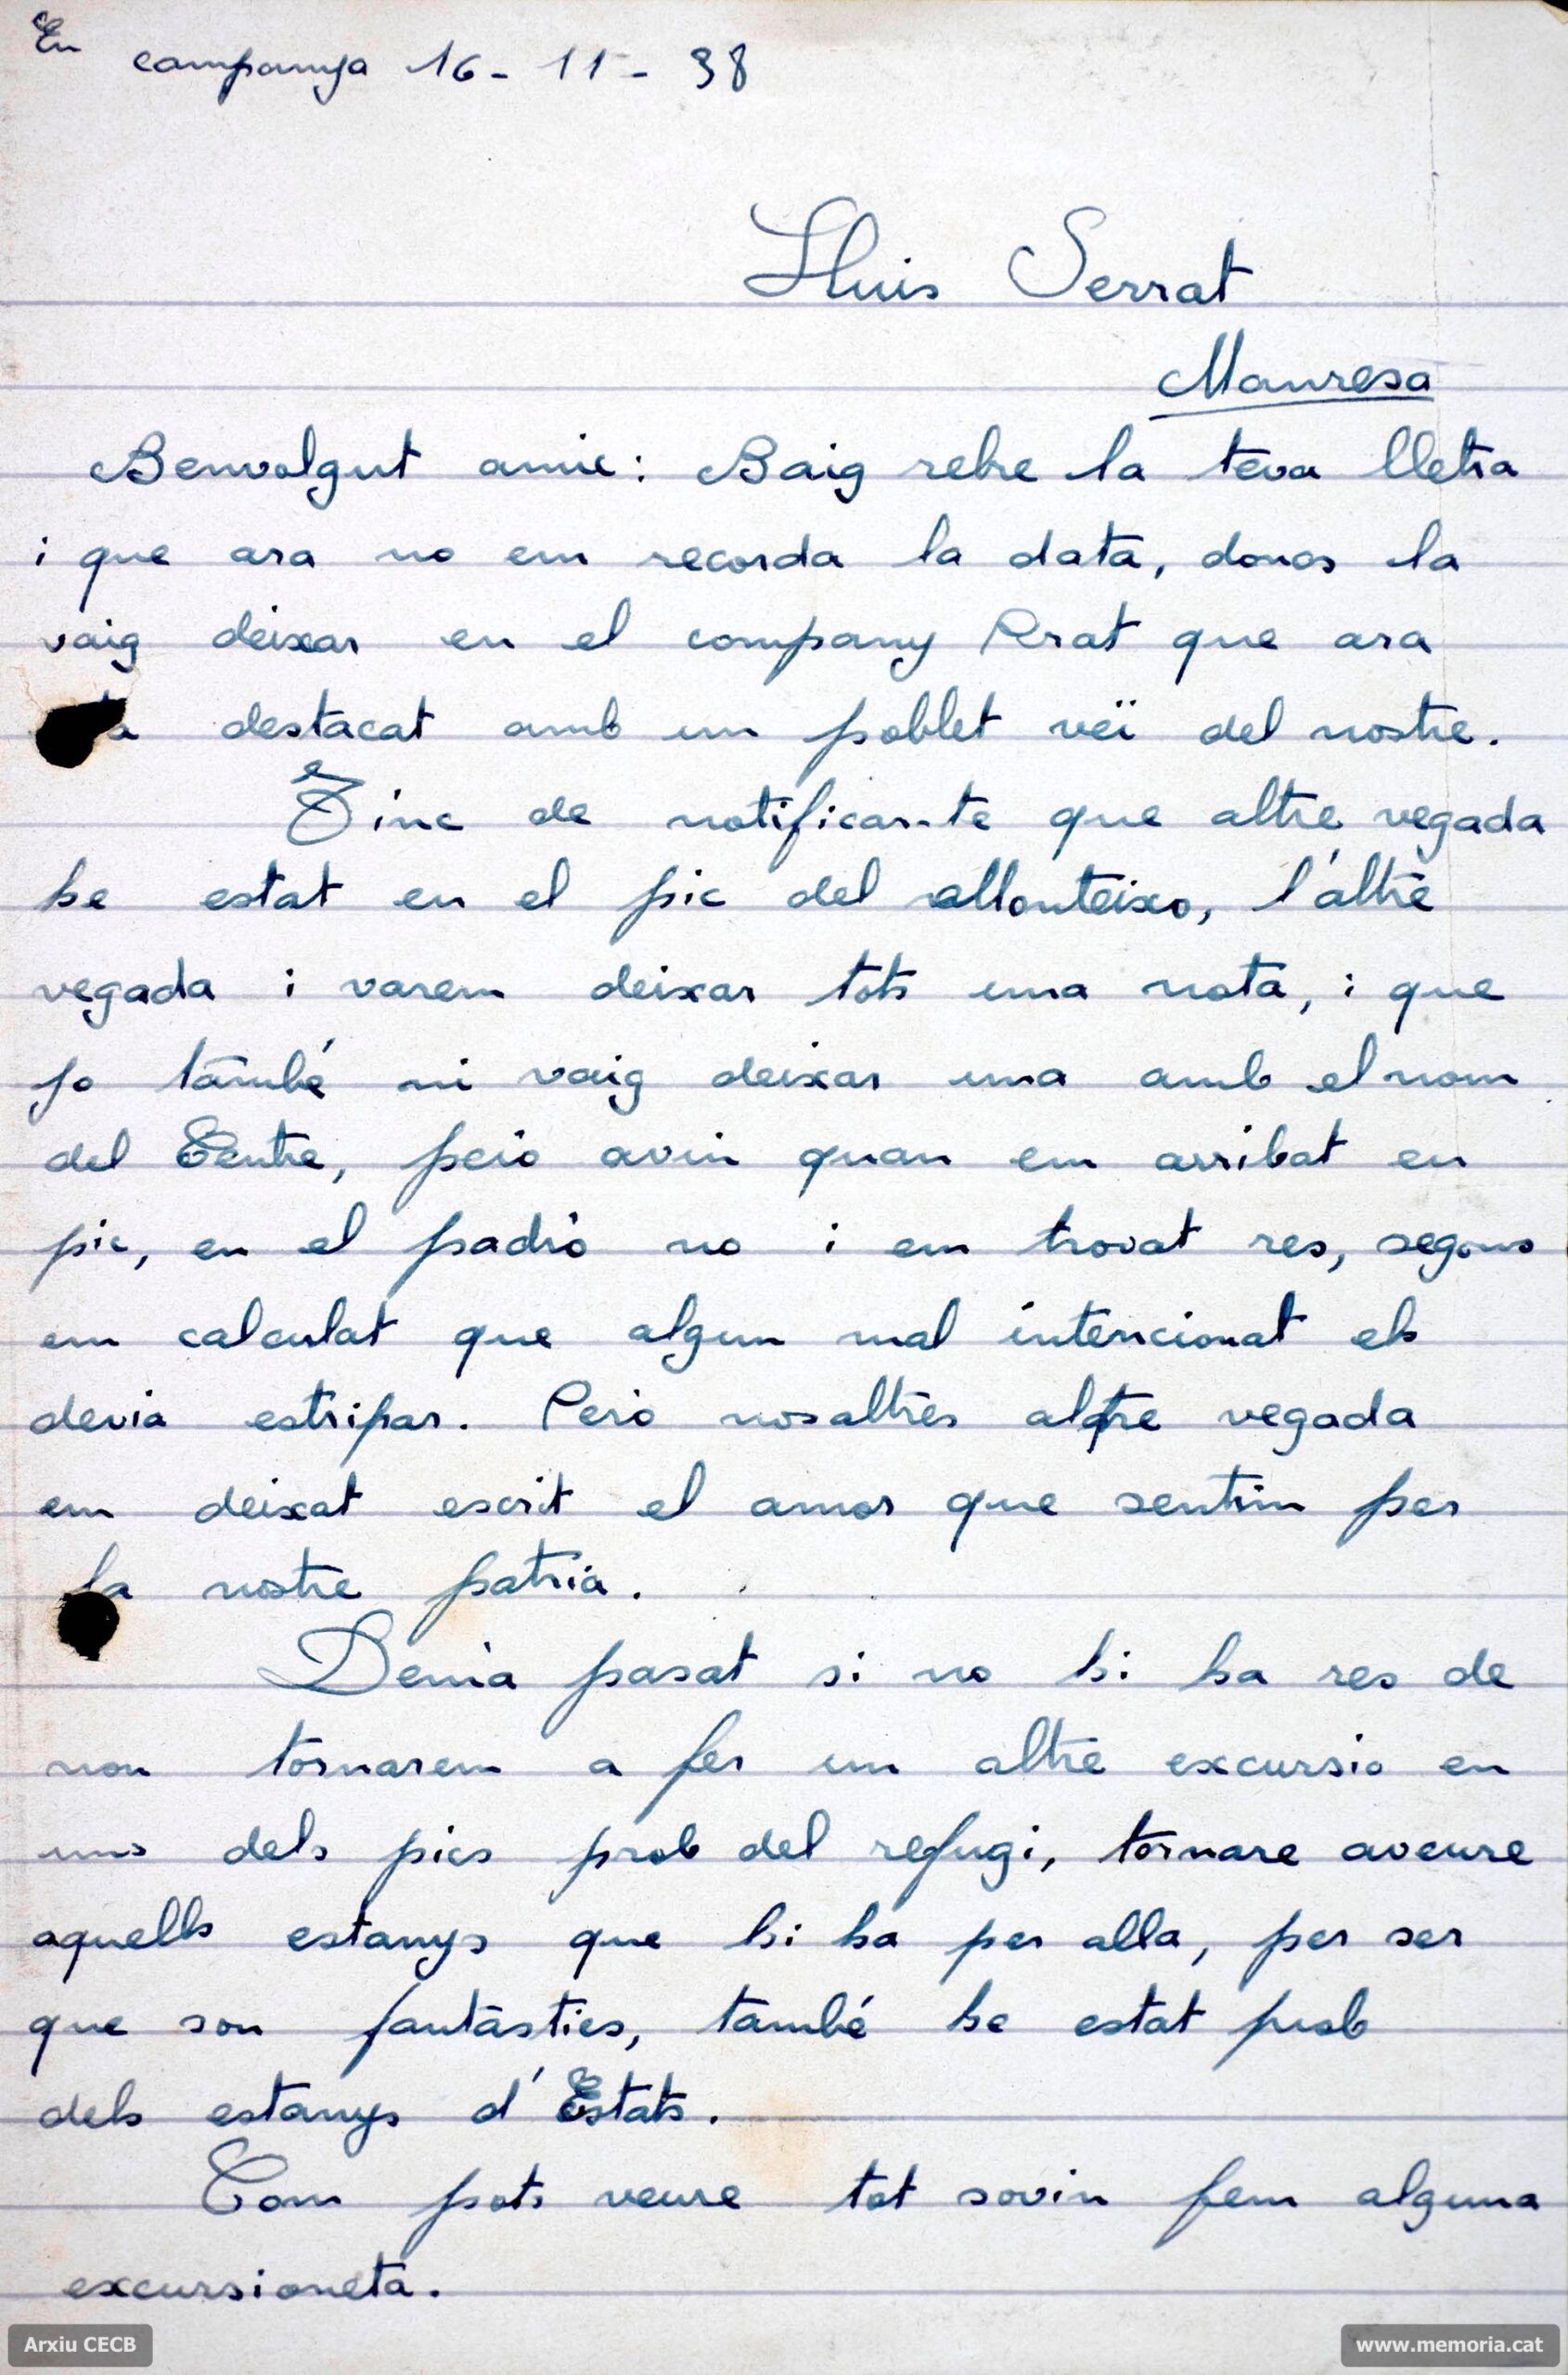 En campanya 16-11-38
Lluis Serrat
Manresa
Benvolgut amic: Baig rebre la teva lletra
i que ara no em recorda la data, doncs la
vaig deixar en el company Prat que ara
ta destacat amb un poblet veï del nostre.
Tinc de notificar-te que altre vegada
he estat en el pic del Monteixo, l'altre
vegada i varem deixar tots una nota, i que
jo també ni vaig deixar una amb el nom
del Centre, però avin quan em arribat en
pic, en el padró no i em trovat res, segons
em calculat que algun mal intencionat els
devia estripar. Però nosaltres altre vegada
em deixat escrit el amor que sentim per
la nostre patria.
Demà pasat si no hi ha res de
nou tornarem a fer un altre excursio en
uns dels pics prob del refugi, tornare aveure
aquells estanys que hi ha per alla, per ser
que son fantàstics, també he estat prob
dels estanys d'Estats.
Com pots veure tot sovin fem alguna
excursioneta.
Arxiu CECB
www.memoria.cat